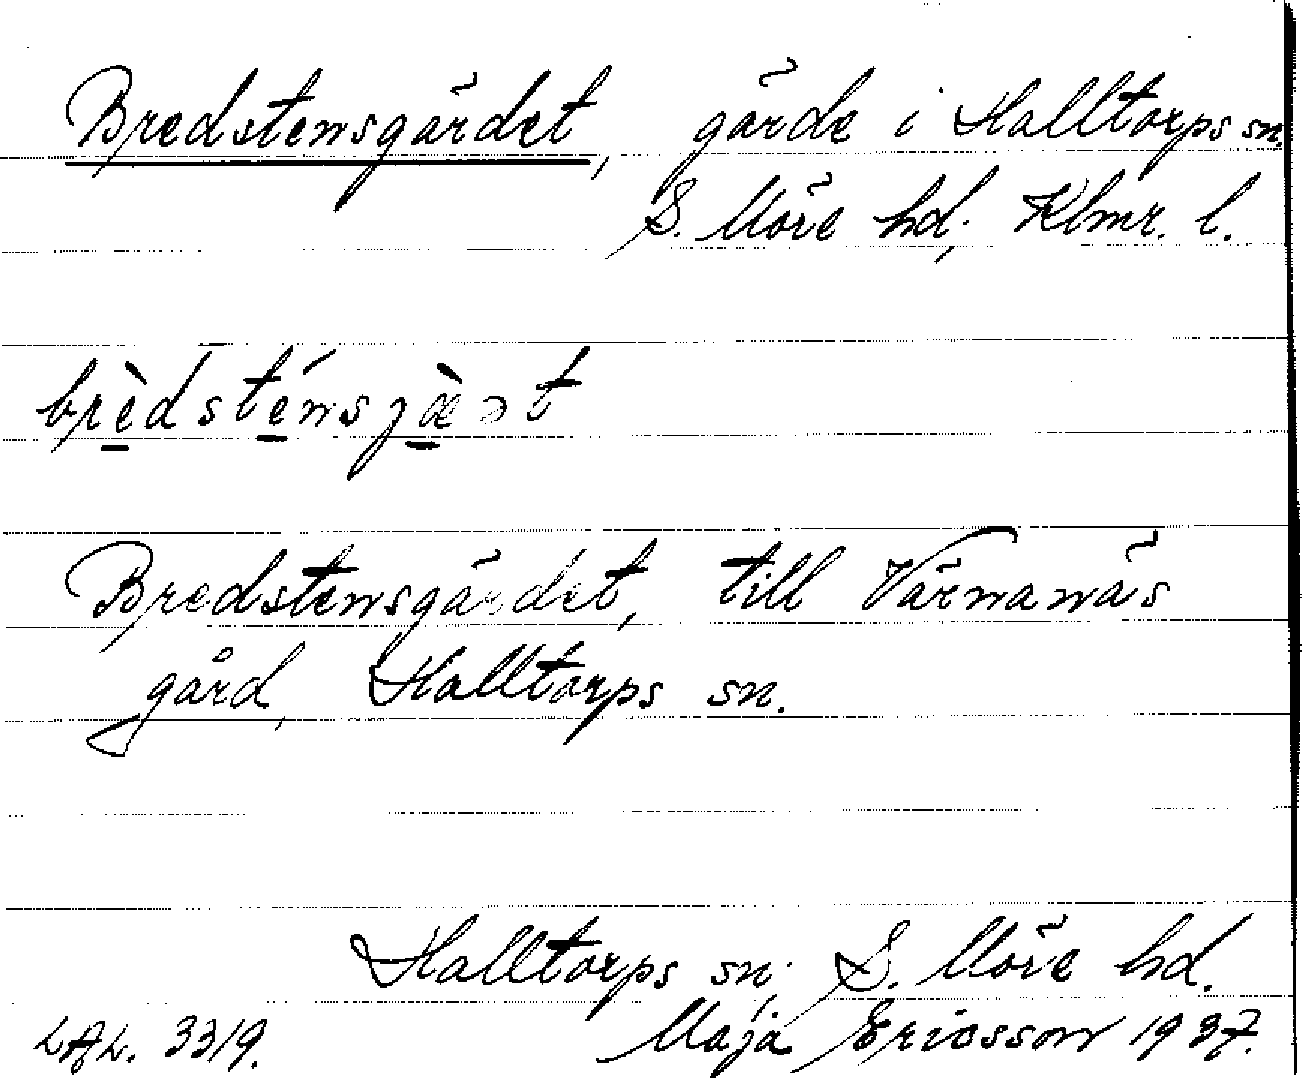 Bredstensgärdet, gärde i Halltorps sn.
S. Möre hd; Klmr. l.
brèdsténsjæ̀ət
Bredstensgärdet, till Värnanäs
gård, Halltorps sn.
Halltorps sn; S. Möre hd.
LAL. 3319. Maja Ericsson 1937.